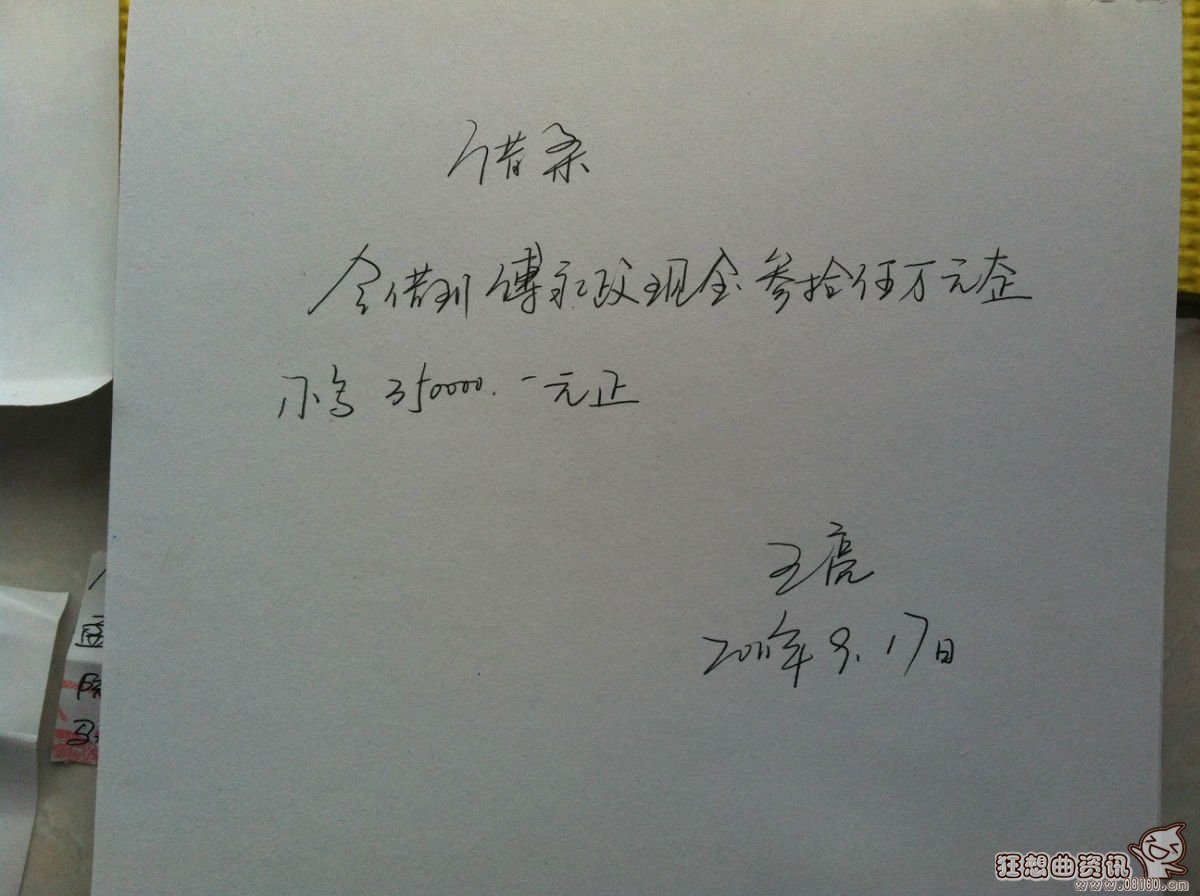 借条
今借到傅永政现金叁拾伍万元整
小写 350000.一元正
王亮
2011年9.17日
国
陈
马
狂想曲资讯
www.08160.com